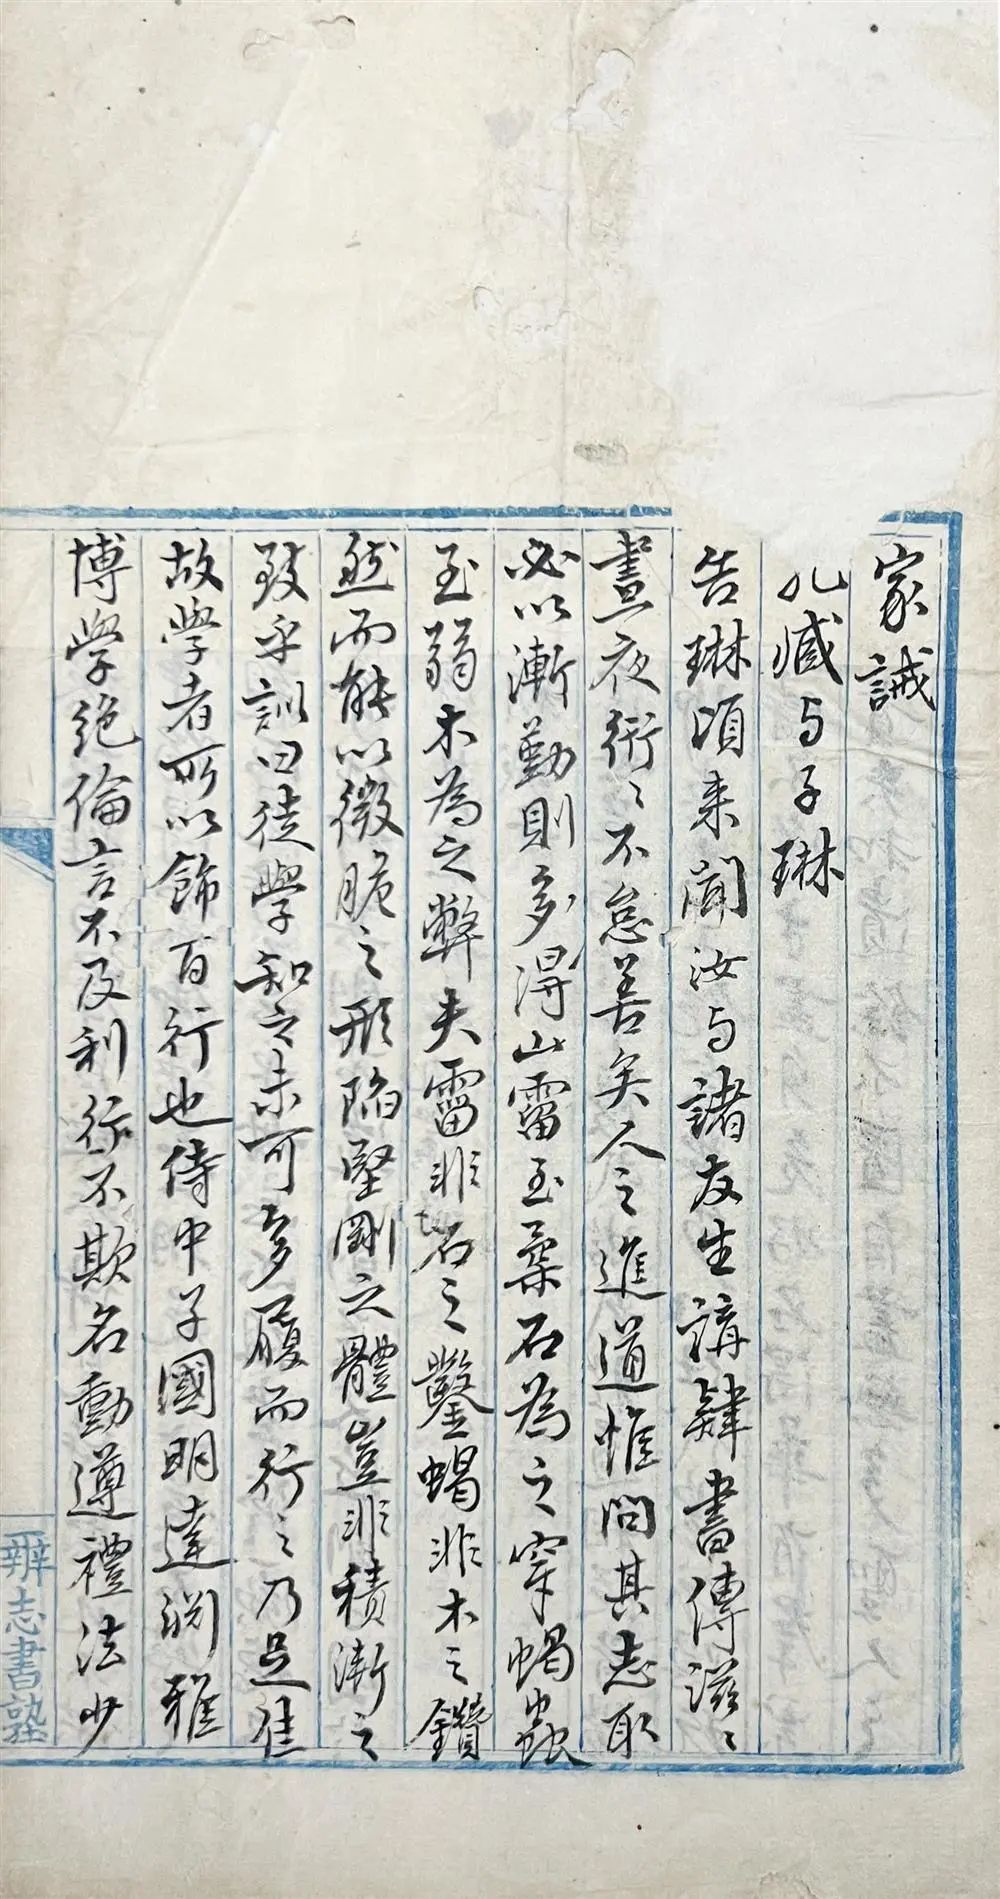 家誡
孔臧与子琳
告琳頃来聞汝与諸友生講肄書傳滋〻
晝夜衎〻不怠善矣人之進道惟問其志取
必以漸勤則多得山霤至柔石為之穿蝎蟲
至弱木為之弊夫霤非石之鑿蝎非木之鑽
然而能以微脆之形陷堅剛之體豈非積漸之
致乎訓曰徒學知之未可多履而行之乃足佳
故學者所以飾百行也侍中子國明達渊雅
博學絶倫言不及利行不欺名動遵禮法少
辨志書塾